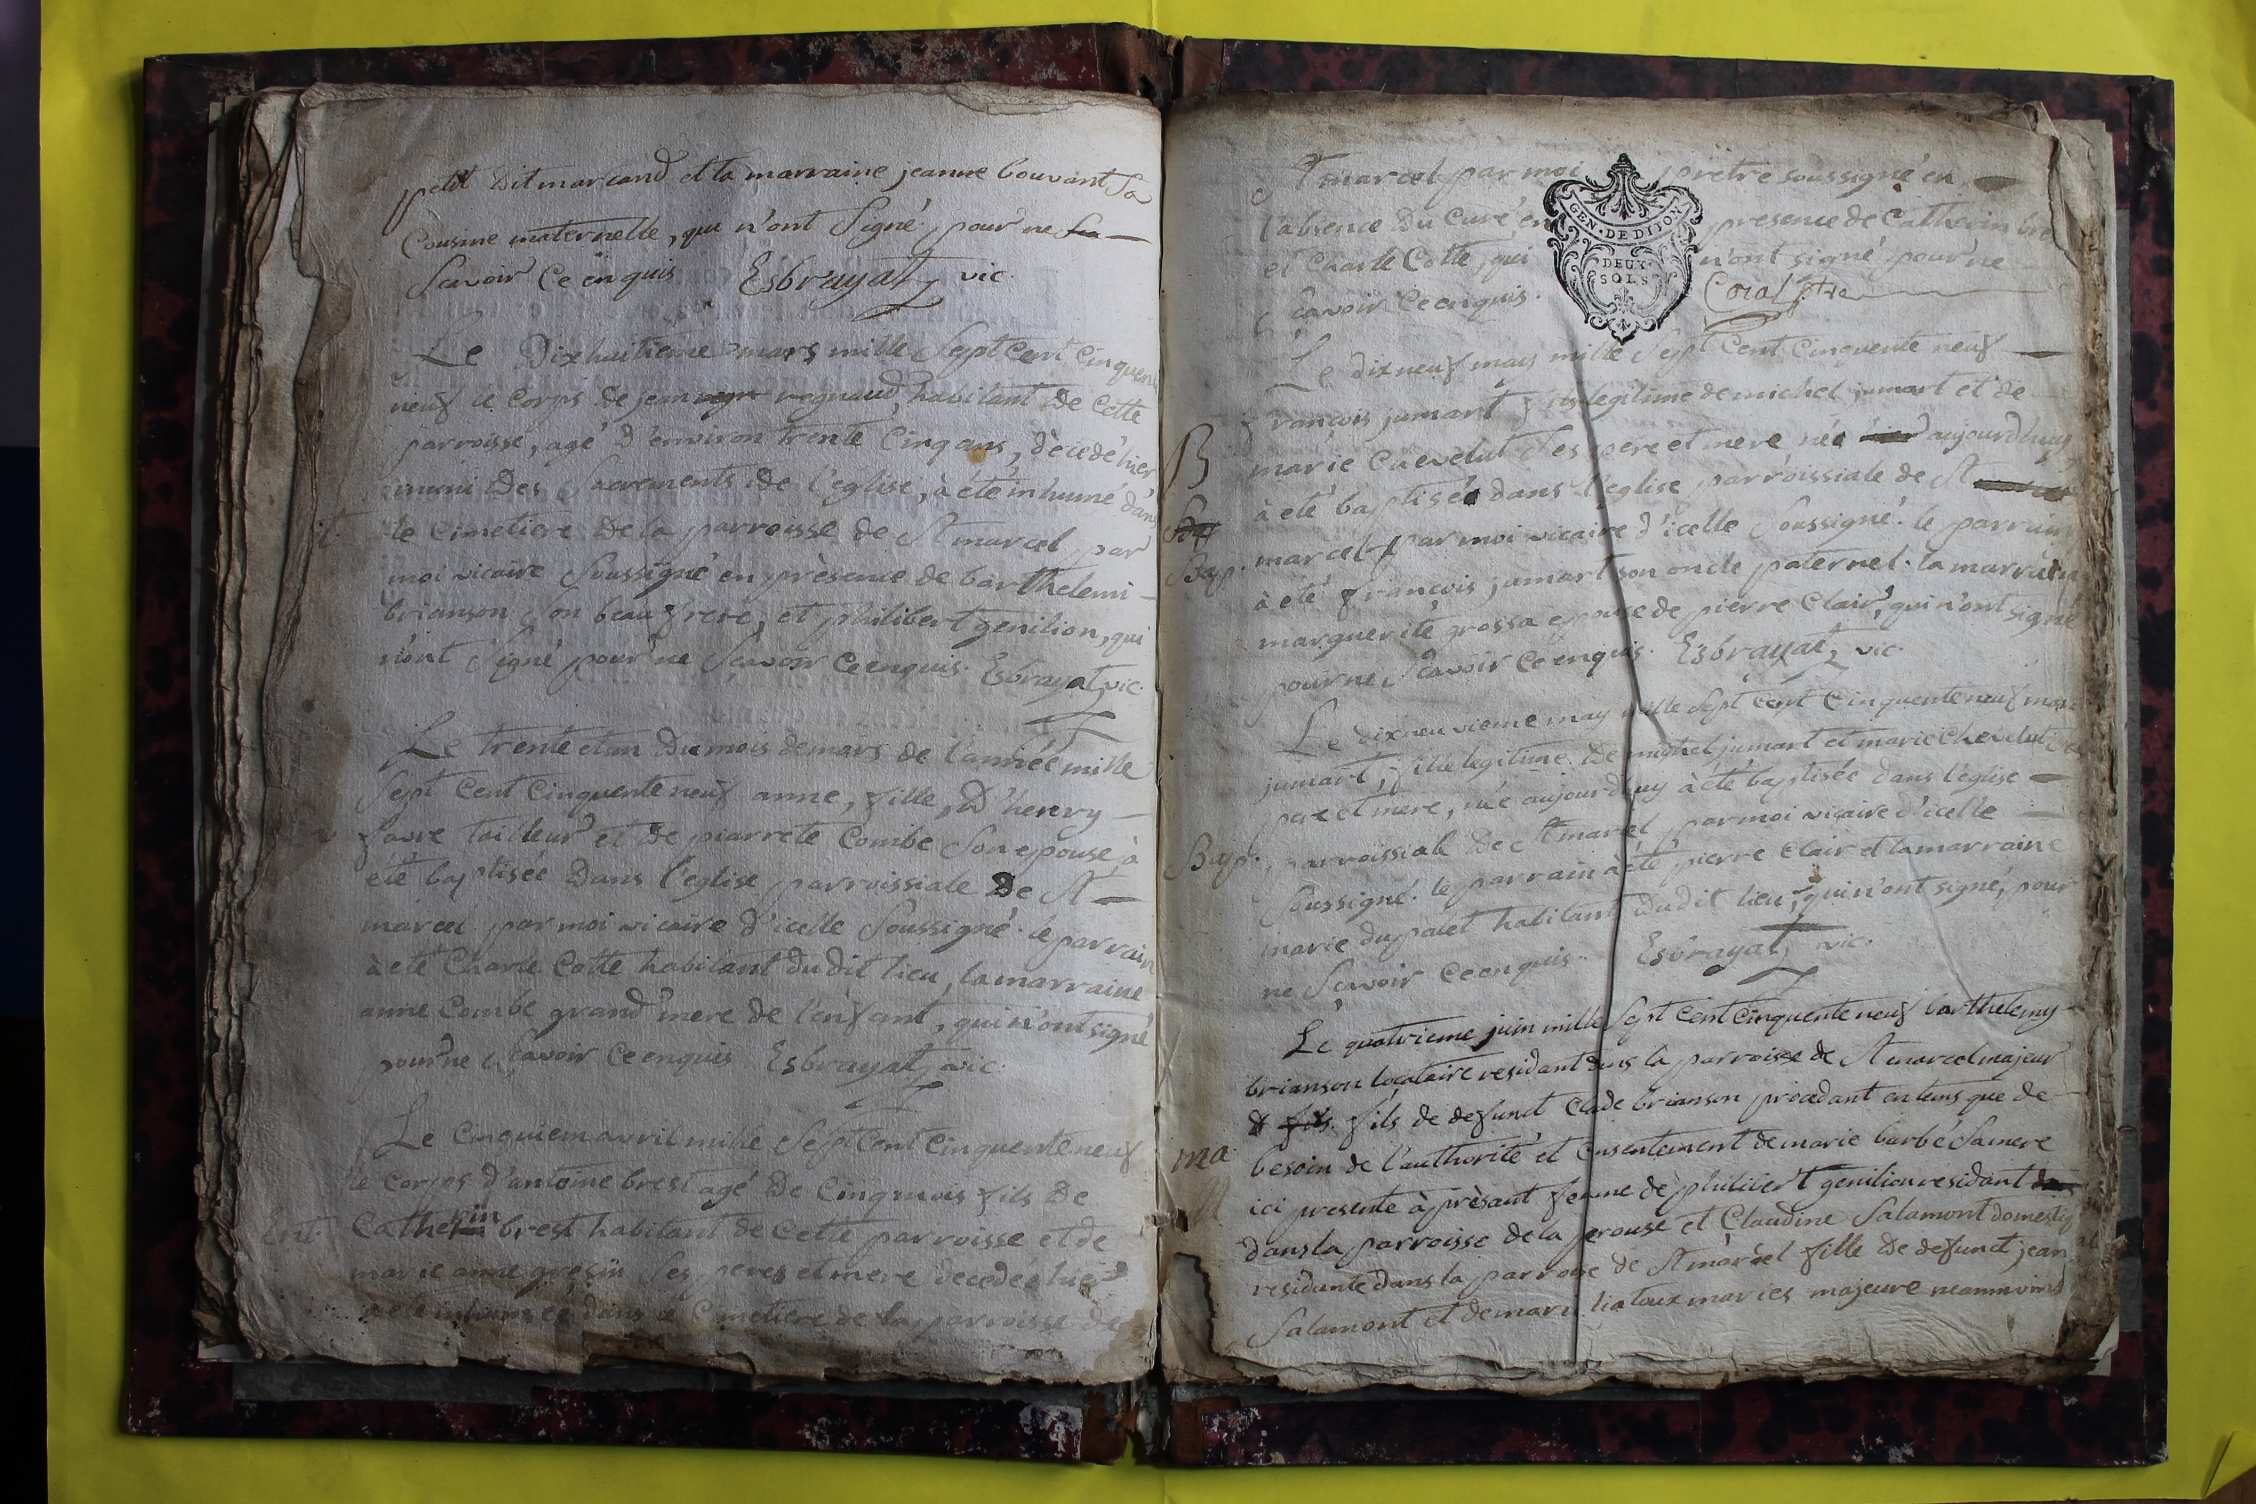 petit dit marcand et la marraine jeanne bouvant Sa
Cousine maternelle, qui n'ont Signé pour ne
Scavoir Ce enquis Esbrayat vic.
Le Dixhuitieme mars mille Sept Cent Cinquente
neuf le Corps de jean regnaud habitant de Cette
parroisse, agé d'environ trente Cinq ans, dècedé hier
muni des Sacrements de l'eglise, à eté inhumé dans
le Cimetiere de la parroisse de St marcel par
moi vicaire Soussigné en prèsence de barthelemi
brianson Son beau frere, et philibert genilion, qui
n'ont Signé pour ne Scavoir Ce enquis. Esbrayat vic.
Le trente et un du mois de mars de l'année mille
Sept Cent Cinquente neuf anne, fille, d'henry
favre tailleur et de piarrete Combe Son epouse à
été baptisée dans l'eglise parroissiale de St
marcel par moi vicaire d'icelle Soussigné. le parrain
à eté Charle Cotte habitant du dit lieu, la marraine
anne Combe grand'mere de l'enfant, qui n'ont signé
pour ne Scavoir Ce enquis Esbrayat vic.
Le Cinquiem avril mille Sept Cent Cinquente neuf
le Corps d'antoine brest agé de Cinq mois fils de
Ent. Catherin brest habitant de Cette parroisse et de
marie anne gresin Ses peres et mere decedé hier
à eté inhumé dans le Cimetiere de la parroisse de
St marcel par moi prêtre soussigné en
l'absence du Curé en presence de Catherin
et Charle Cotte, qui n'ont signé pour ne
Scavoir Ce enquis.
GEN · DE DIJON
DEUX
SOLS
Le dixneuf may mille Sept Cent Cinquente neuf
françois jumart fils legitime de michel jumart et de
marie Chevelut Ses pere et mere né aujourdhuy
B
à eté baptisé dans l'eglise parroissiale de St
Bap. marcel par moi vicaire d'icelle Soussigné. le parrain
à eté françois jumart son oncle paternel. la marraine
marguerite grossa epouse de pierre Clair, qui n'ont signé
pour ne Scavoir Ce enquis. Esbrayat vic.
Le dixneuvieme may mille Sept Cent Cinquente neuf
jumart, fille legitime de michel jumart et marie Chevelut
pere et mere, née aujourdhuy à eté baptisée dans l'eglise
Bap. parroissiale de St marcel par moi vicaire d'icelle
Soussigné. le parrain à été pierre Clair et la marraine
marie dupalet habitant du dit lieu, qui n'ont signé, pour
ne Scavoir Ce enquis. Esbrayat vic.
Le quatrieme juin mille Sept Cent Cinquente neuf barthelemy
brianson locataire residant dans la parroisse de St marcel majeur
fils de defunct Clade brianson procedant en tems que de
ma besoin de l'authorité et Consentement de marie barbé Sa mere
ici presente à prèsant femme de philibert genilion residant
dans la parroisse de la perouse et Claudine Salamont domestique
residante dans la parroise de St marcel fille de defunct jean
Salamont et de marie liatoux mariés majeure neanmoins